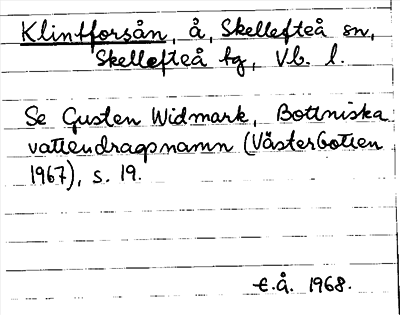 Klintforsån, å, Skellefteå sn,
Skellefteå tg, Vb. l.
Se Gusten Widmark, Bottniska
vattendragsnamn (Västerbotten
1967), s. 19.
E.Å. 1968.